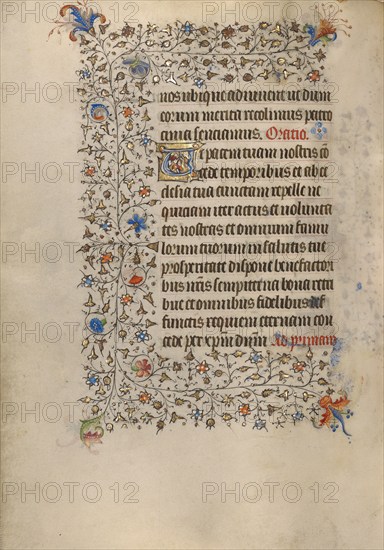 nos ubique adiuvent ut dum
eorum merita recolimus patro
cinia senciamus. Oratio.
Et pacem tuam nostris cō
cede temporibus et ab ec
clesia tua cunctam repelle ne
quiciam iter actus et volunta
tes nostras et omnium famu
lorum tuorum in salutis tue
prosperitate dispone benefactori
bus nr̄is sempiterna bona retri
bue et omnibus fidelibus def
functis requiem eternam con
cede per xp̄m dn̄m Ad primam
PHOTO 12